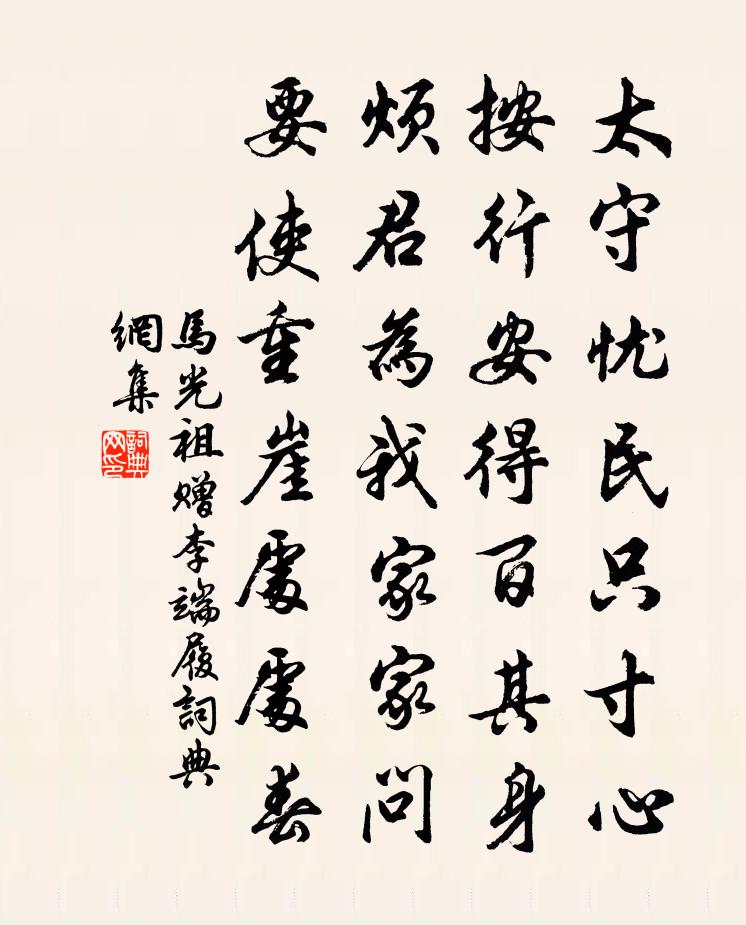 太守忧民只寸心
按行安得百其身
烦君為我家家问
要使重崖處處春
馬光祖赠李端履詞典
網集
詞典
网印